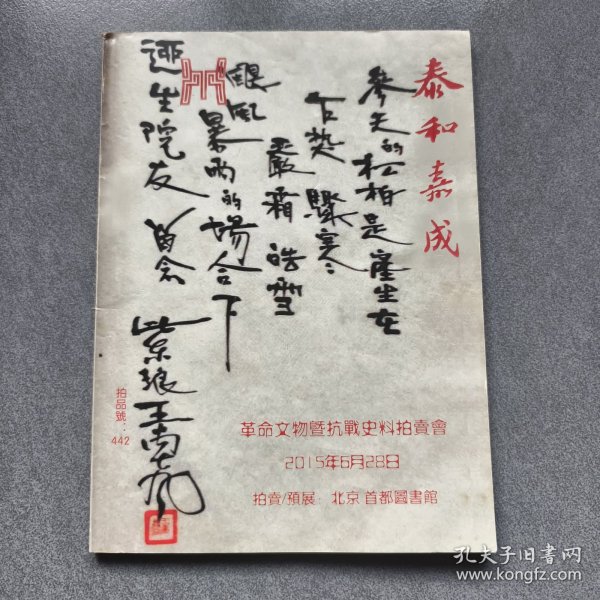 泰和嘉成
參天的松柏是產生在
嚴霜皓雪
暴雨的場合下
院友 留念
拍品號：
442
革命文物暨抗戰史料拍賣會
2015年6月28日
拍賣/預展：北京 首都圖書館
孔夫子旧書网
www.kongfz.com